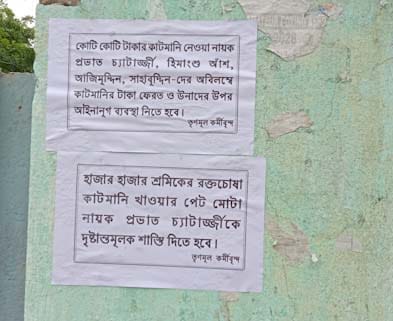 কোটি কোটি টাকার কাটমানি নেওয়া নায়ক
প্রভাত চ্যাটার্জ্জী, হিমাংশু আঁশ,
আজিমুদ্দিন, সাহাবুদ্দিন-দের অবিলম্বে
কাটমানির টাকা ফেরত ও উনাদের উপর
আইনানুগ ব্যবস্থা নিতে হবে।
তৃণমূল কর্মীবৃন্দ
হাজার হাজার শ্রমিকের রক্তচোষা
কাটমানি খাওয়ার পেট মোটা
নায়ক প্রভাত চ্যাটার্জ্জীকে
দৃষ্টান্তমূলক শাস্তি দিতে হবে।
তৃণমূল কর্মীবৃন্দ